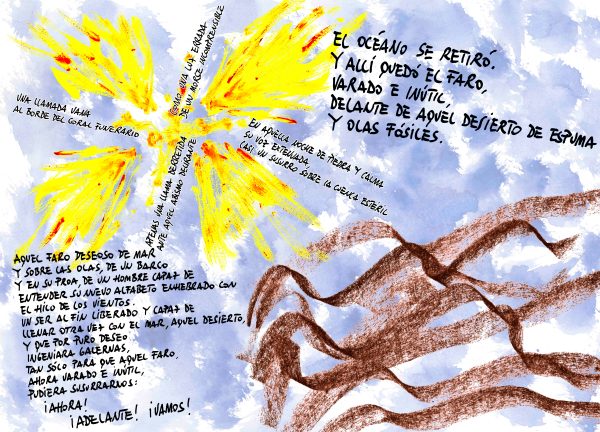 EL OCÉANO SE RETIRÓ.
Y ALLÍ QUEDÓ EL FARO,
VARADO E INÚTIL,
DELANTE DE AQUEL DESIERTO DE ESPUMA
Y OLAS FÓSILES.
COMO UNA LUZ ERRADA
DE UN MORSE INCOMPRENSIBLE
UNA LLAMADA VANA
AL BORDE DEL CORAL FUNERARIO
EN AQUELLA NOCHE DE PIEDRA Y CALMA
SU VOZ ENTELADA,
CASI UN SUSURRO SOBRE LA CUENCA ESTÉRIL
APENAS UNA LLAMA DERRETIDA
ANTE AQUEL ABISMO DELIRANTE
AQUEL FARO DESEOSO DE MAR
Y SOBRE LAS OLAS, DE UN BARCO
Y EN SU PROA, DE UN HOMBRE CAPAZ DE
ENTENDER SU NUEVO ALFABETO ENHEBRADO CON
EL HILO DE LOS VIENTOS.
UN SER AL FIN LIBERADO Y CAPAZ DE
LLENAR OTRA VEZ CON EL MAR, AQUEL DESIERTO,
Y QUE POR PURO DESEO
INGENIARA GALERNAS,
TAN SÓLO PARA QUE AQUEL FARO,
AHORA VARADO E INÚTIL,
PUDIERA SUSURRARNOS:
¡AHORA!
¡ADELANTE! ¡VAMOS!